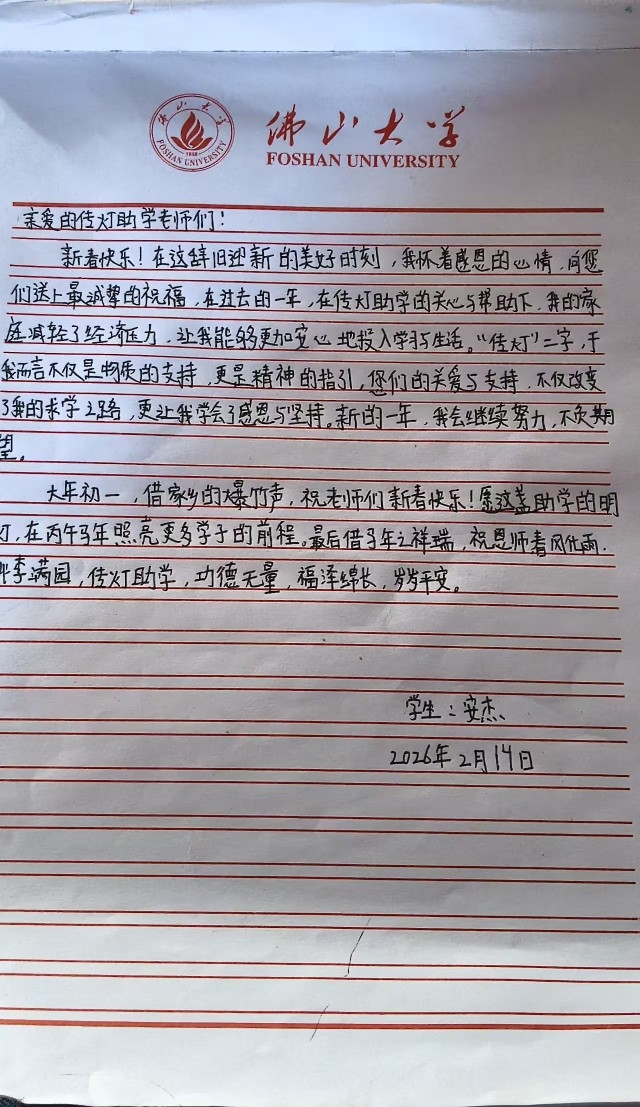 佛山大学
FOSHAN UNIVERSITY
1958
佛山大学
FOSHAN UNIVERSITY
亲爱的传灯助学老师们！
新春快乐！在这辞旧迎新的美好时刻，我怀着感恩的心情，向您
们送上最诚挚的祝福，在过去的一年，在传灯助学的关心与帮助下，我的家
庭减轻了经济压力，让我能够更加安心地投入学习与生活。“传灯”二字，于
我而言不仅是物质的支持，更是精神的指引，您们的关爱与支持，不仅改变
了我的求学之路，更让我学会了感恩与坚持。新的一年，我会继续努力，不负期
望。
大年初一，借家乡的爆竹声，祝老师们新春快乐！愿这盏助学的明
灯，在丙午马年照亮更多学子的前程。最后借马年之祥瑞，祝恩师春风化雨，
桃李满园，传灯助学，功德无量，福泽绵长，岁岁平安。
学生：安杰
2026年2月14日